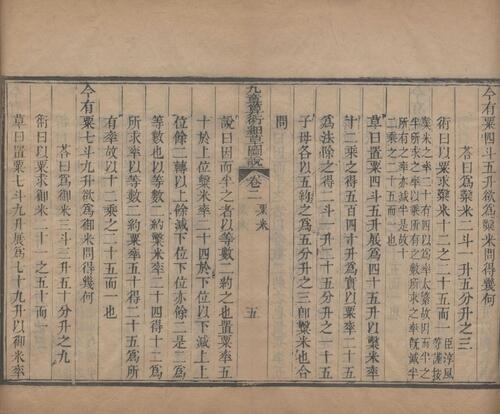 今有粟四斗五升欲爲糳米問得幾何
荅曰爲糳米二斗一升五分升之三
術曰以粟求糳米十二之二十五而一
臣淳風
等謹按
糳米之率二十有四以爲率太繁故因而半之
半所求之率以乘所有之數所求之率旣減半
所有之率亦減半是故十
二乘之二十五而一也
草曰置粟四斗五升展爲四十五升以糳米率
十二乘之得五百四十升爲實以粟率二十五
爲法除之得二十一升二十五分升之一十五
子母各以五約之爲五分升之三卽糳米也合
問
九章算術細草圖說
卷二
粟米
五
說曰因而半之者以等數二約之也置粟率五
十於上位糳米率二十四於下位以下減上上
位餘二轉以上餘減下位下位亦餘二是二爲
等數也以等數二約糳米率二十四得十二爲
所求率以等數二約粟率五十得二十五爲所
有率故以十二乘之二十五而一也
今有粟七斗九升欲爲御米問得幾何
荅曰爲御米三斗三升五十分升之九
術曰以粟求御米二十一之五十而一
草曰置粟七斗九升展爲七十九升以御米率